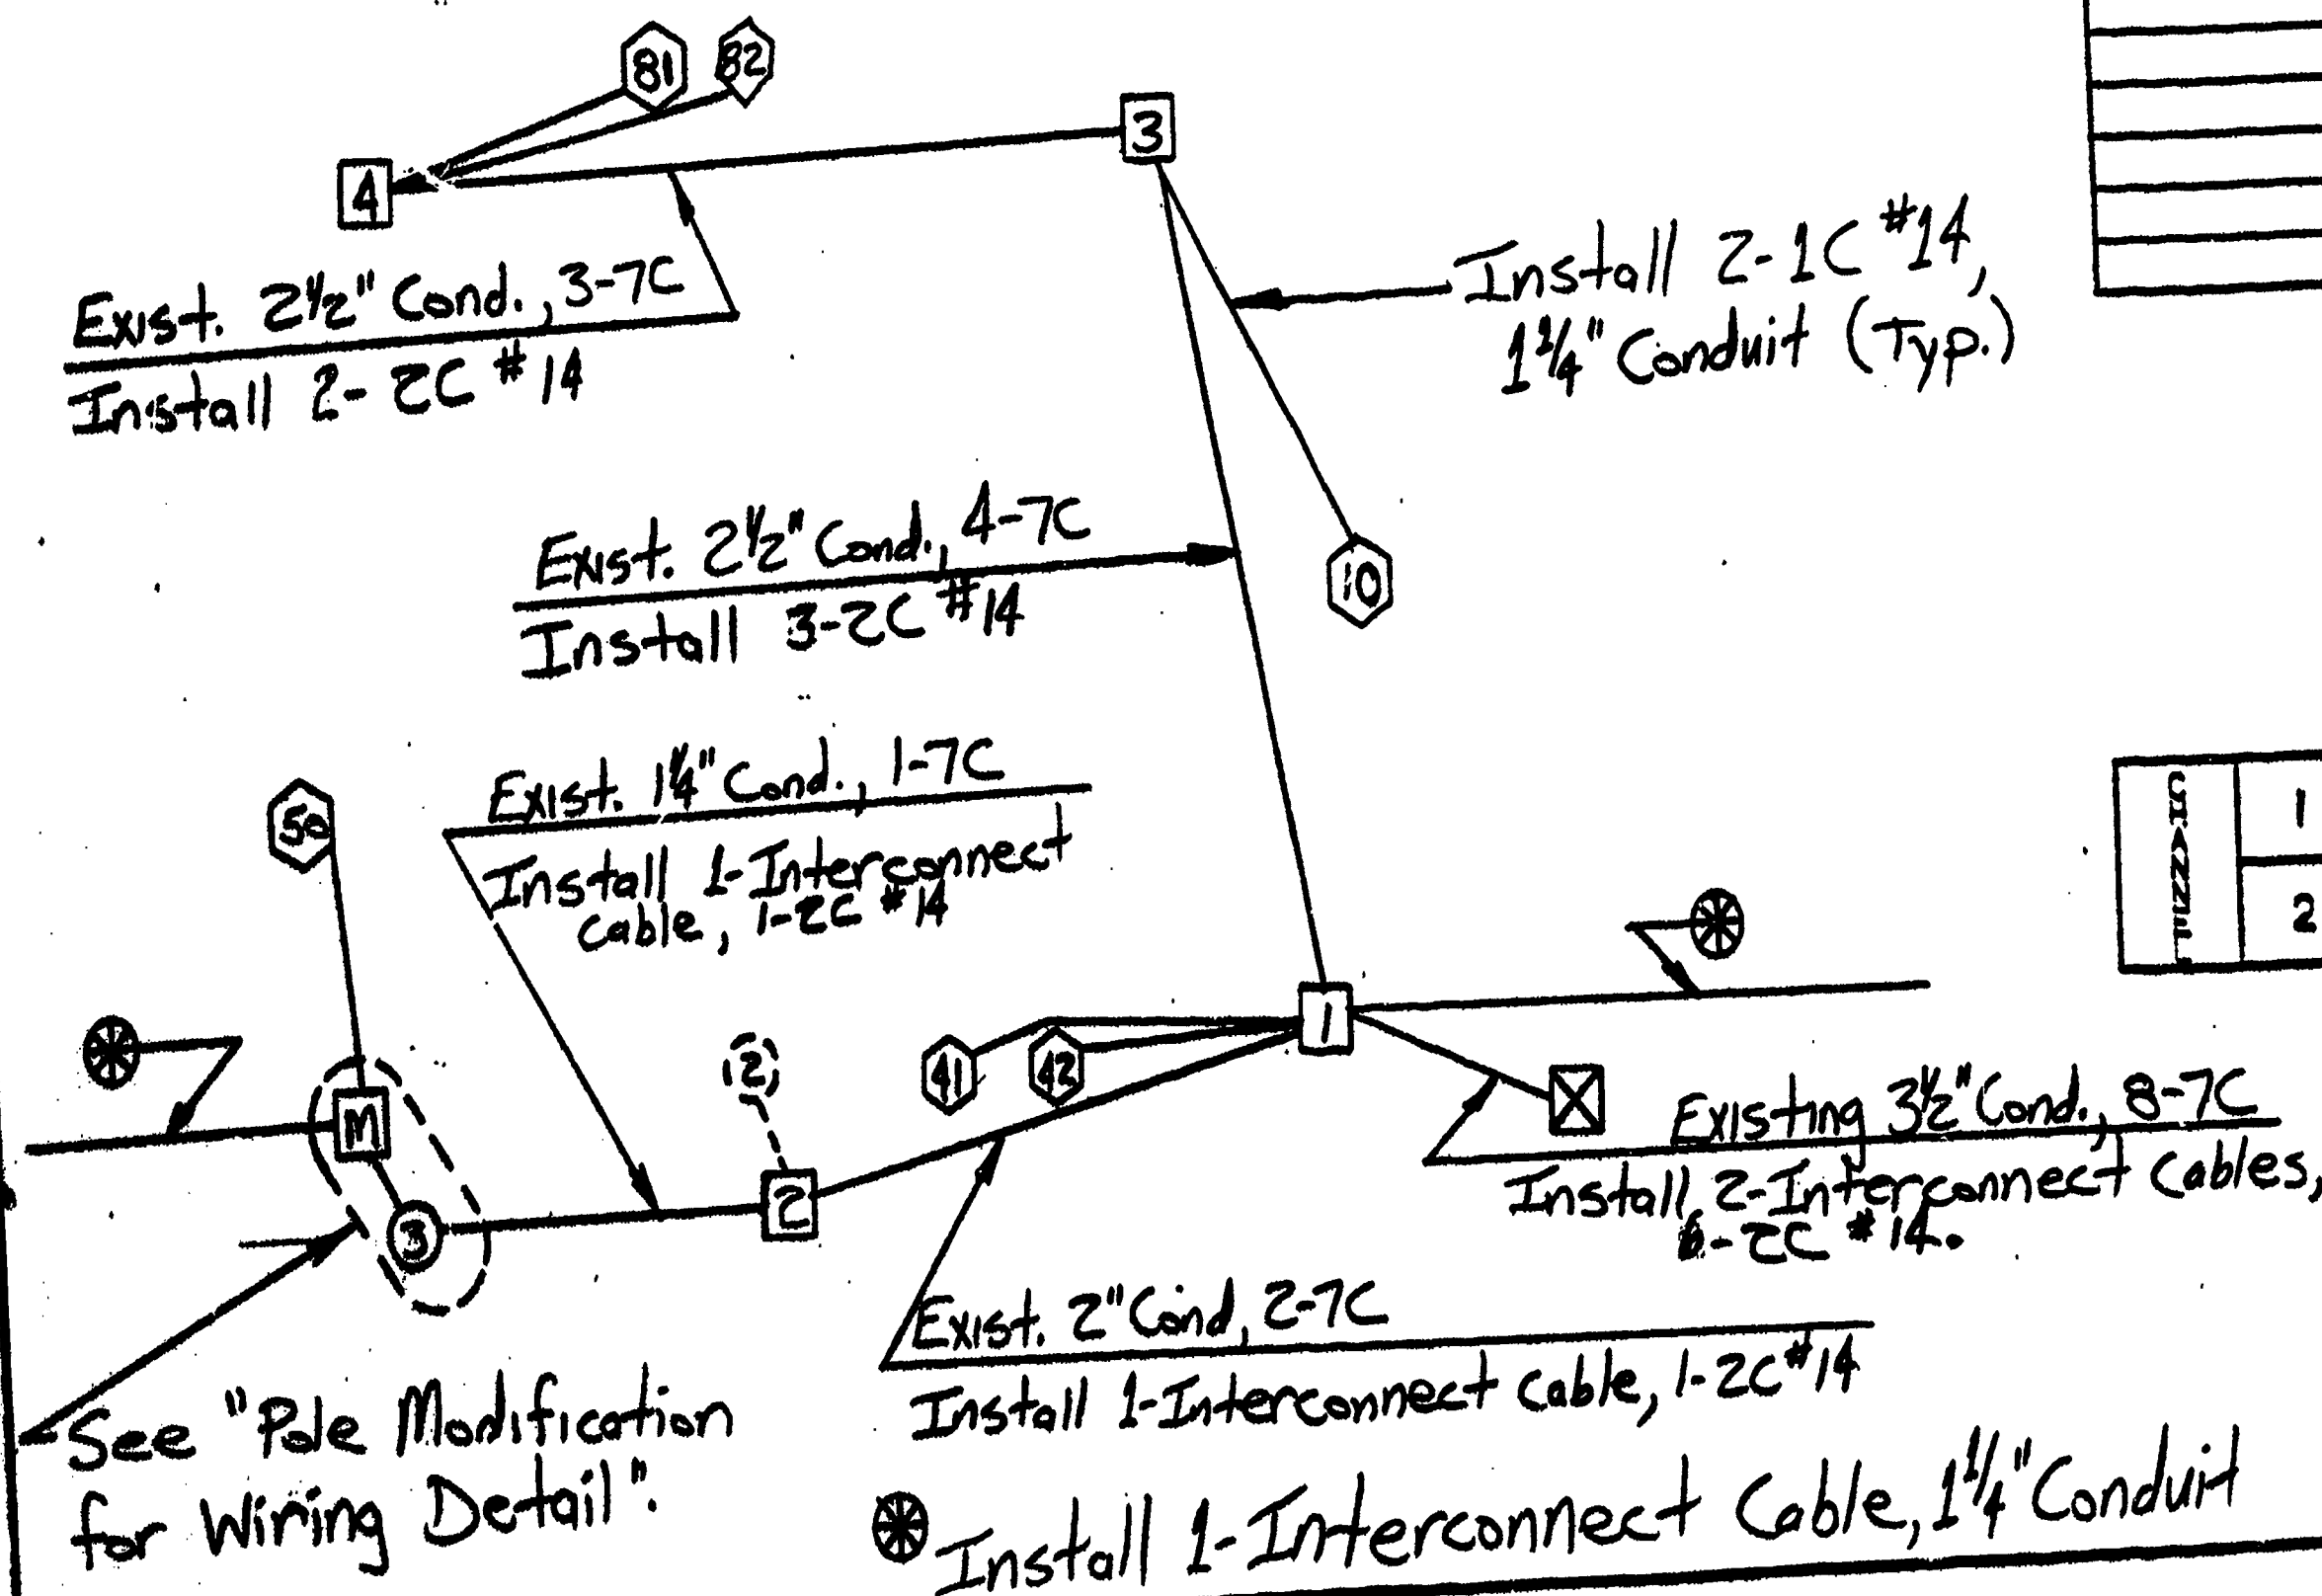 81
82
3
4
Exist. 2½" Cond., 3-7C
Install 2-2C #14
Install 2-1C #14,
1¼" Conduit (Typ.)
Exist. 2½" Cond., 4-7C
Install 3-2C #14
10
Exist. 1¼" Cond., 1-7C
Install 1-Interconnect
Cable, 1-2C #14
50
CHANNEL
1
2
M
3
2
2
41
42
1
Existing 3½" Cond., 8-7C
Install 2-Interconnect Cables,
6-2C #14.
Exist. 2" Cond, 2-7C
Install 1-Interconnect Cable, 1-2C #14
See "Pole Modification
for Wiring Detail".
Install 1-Interconnect Cable, 1¼" Conduit